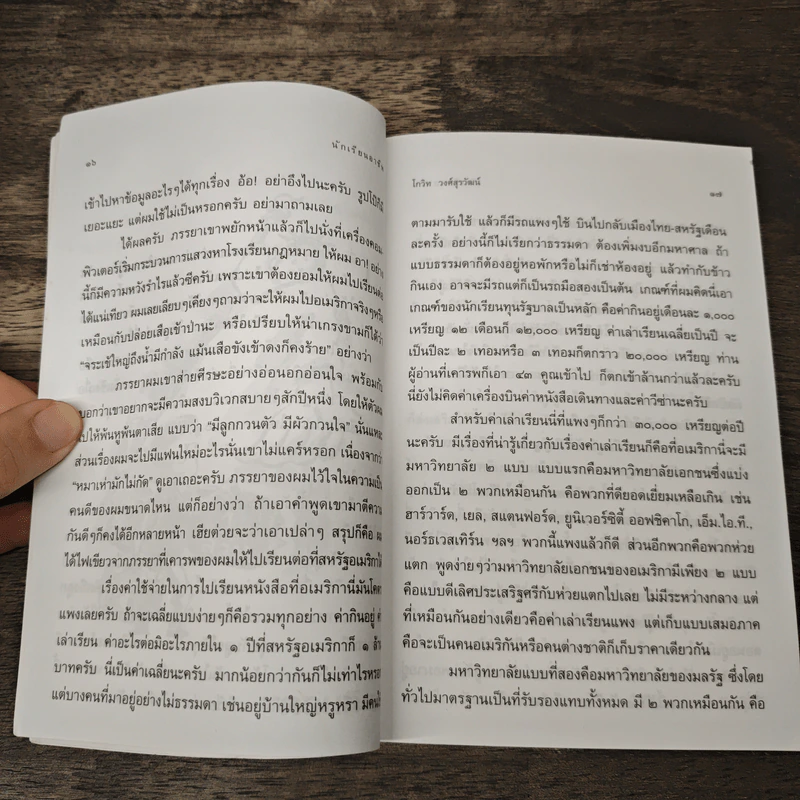 ๑๖
นักเรียนอาชีพ
เข้าไปหาข้อมูลอะไรๆได้ทุกเรื่อง อ้อ! อย่าอึงไปนะครับ รูปโป๊ก็มี
เยอะแยะ แต่ผมใช้ไม่เป็นหรอกครับ อย่ามาถามเลย
ได้ผลครับ ภรรยาเขาพยักหน้าแล้วก็ไปนั่งที่เครื่องคอม
พิวเตอร์เริ่มกระบวนการแสวงหาโรงเรียนกฎหมาย ให้ผม อา! อย่าง
นี้ก็มีความหวังรำไรแล้วซีครับ เพราะเขาต้องยอมให้ผมไปเรียนต่อ
ได้แน่เทียว ผมเลยเลียบๆเคียงๆถามว่าจะให้ผมไปอเมริกาจริงๆหรือ
เหมือนกับปล่อยเสือเข้าป่านะ หรือเปรียบให้น่าเกรงขามก็ได้ว่า
“จระเข้ใหญ่ถึงน้ำมีกำลัง แม้นเสือขังเข้าดงก็คงร้าย” อย่างว่า
ภรรยาผมเขาส่ายศีรษะอย่างอ่อนอกอ่อนใจ พร้อมกับ
บอกว่าเขาอยากจะมีความสงบวิเวกสบายๆสักปีหนึ่ง โดยให้ตัวผม
ไปให้พ้นหูพ้นตาเสีย แบบว่า “มีลูกกวนตัว มีผัวกวนใจ” นั่นแหละ
ส่วนเรื่องผมจะไปมีแฟนใหม่อะไรนั่นเขาไม่แคร์หรอก เนื่องจากว่า
“หมาเห่ามักไม่กัด” ดูเอาเถอะครับ ภรรยาของผมไว้ใจในความเป็น
คนดีของผมขนาดไหน แต่ก็อย่างว่า ถ้าเอาคำพูดเขามาตีความ
กันดีๆก็คงได้อีกหลายหน้า เฮียด่วยจะว่าเอาเปล่าๆ สรุปก็คือ ผม
ได้ไฟเขียวจากภรรยาที่เคารพของผมให้ไปเรียนต่อที่สหรัฐอเมริกาได้
เรื่องค่าใช้จ่ายในการไปเรียนหนังสือที่อเมริกานี่มันโคตร
แพงเลยครับ ถ้าจะเฉลี่ยแบบง่ายๆก็คือรวมทุกอย่าง ค่ากินอยู่ ค่า
เล่าเรียน ค่าอะไรต่อมิอะไรภายใน ๑ ปีที่สหรัฐอเมริกาก็ ๑ ล้าน
บาทครับ นี่เป็นค่าเฉลี่ยนะครับ มากน้อยกว่ากันก็ไม่เท่าไรหรอก
แต่บางคนที่มาอยู่อย่างไม่ธรรมดา เช่นอยู่บ้านใหญ่หรูหรา มีคนใช้
โกวิท วงศ์สุรวัฒน์
๑๗
ตามมารับใช้ แล้วก็มีรถแพงๆใช้ บินไปกลับเมืองไทย-สหรัฐเดือน
ละครั้ง อย่างนี้ก็ไม่เรียกว่าธรรมดา ต้องเพิ่มงบอีกมหาศาล ถ้า
แบบธรรมดาก็ต้องอยู่หอพักหรือไม่ก็เช่าห้องอยู่ แล้วทำกับข้าว
กินเอง อาจจะมีรถแต่ก็เป็นรถมือสองเป็นต้น เกณฑ์ที่ผมคิดนี่เอา
เกณฑ์ของนักเรียนทุนรัฐบาลเป็นหลัก คือค่ากินอยู่เดือนละ ๑,๐๐๐
เหรียญ ๑๒ เดือนก็ ๑๒,๐๐๐ เหรียญ ค่าเล่าเรียนเฉลี่ยเป็นปี จะ
เป็นปีละ ๒ เทอมหรือ ๓ เทอมก็ตกราว ๒๐,๐๐๐ เหรียญ ท่าน
ผู้อ่านที่เคารพก็เอา ๔๓ คูณเข้าไป ก็ตกเข้าล้านกว่าแล้วละครับ
นี่ยังไม่คิดค่าเครื่องบินค่าหนังสือเดินทางและค่าวีซ่านะครับ
สำหรับค่าเล่าเรียนนี่ที่แพงๆก็กว่า ๓๐,๐๐๐ เหรียญต่อปี
นะครับ มีเรื่องที่น่ารู้เกี่ยวกับเรื่องค่าเล่าเรียนก็คือที่อเมริกานี่จะมี
มหาวิทยาลัย ๒ แบบ แบบแรกคือมหาวิทยาลัยเอกชนซึ่งแบ่ง
ออกเป็น ๒ พวกเหมือนกัน คือพวกที่ดียอดเยี่ยมเหลือเกิน เช่น
ฮาร์วาร์ด, เยล, สแตนฟอร์ด, ยูนิเวอร์ซิตี้ ออฟชิคาโก, เอ็ม.ไอ.ที.,
นอร์ธเวสเทิร์น ฯลฯ พวกนี้แพงแล้วก็ดี ส่วนอีกพวกคือพวกห่วย
แตก พูดง่ายๆว่ามหาวิทยาลัยเอกชนของอเมริกามีเพียง ๒ แบบ
คือแบบดีเลิศประเสริฐศรีกับห่วยแตกไปเลย ไม่มีระหว่างกลาง แต่
ที่เหมือนกันอย่างเดียวคือค่าเล่าเรียนแพง แต่เก็บแบบเสมอภาค
คือจะเป็นคนอเมริกันหรือคนต่างชาติก็เก็บราคาเดียวกัน
มหาวิทยาลัยแบบที่สองคือมหาวิทยาลัยของมลรัฐ ซึ่งโดย
ทั่วไปมาตรฐานเป็นที่รับรองแทบทั้งหมด มี ๒ พวกเหมือนกัน คือ